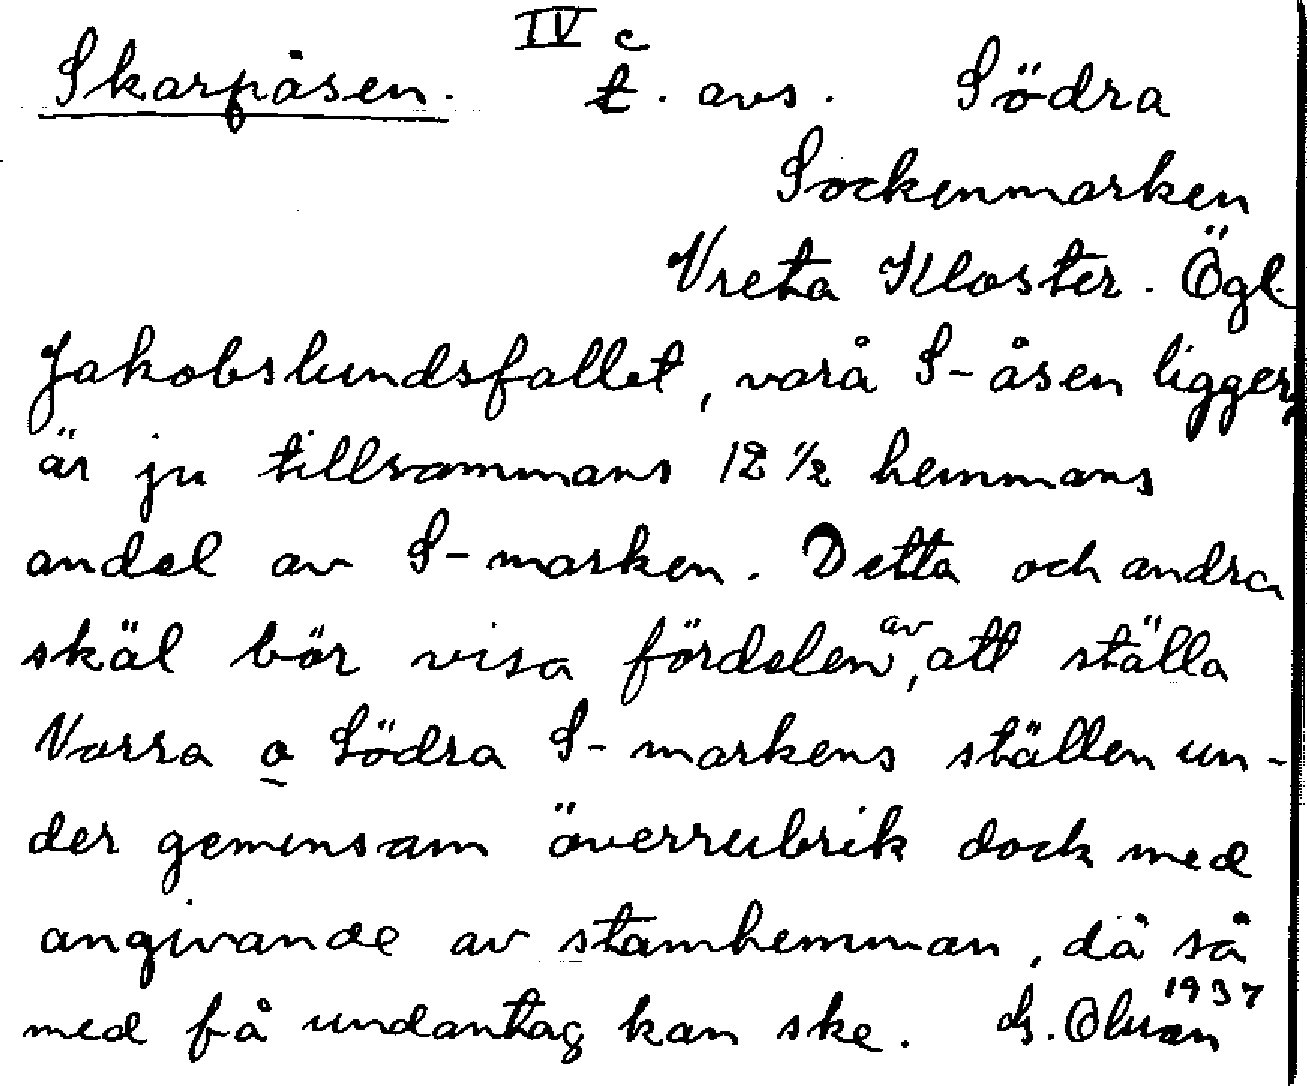 IV c
Skarpåsen. t. avs. Södra
Sockenmarken
Vreta Kloster. Ögl.
Jakobslundsfallet, varå S-åsen ligger,
är ju tillsammans 12 1/2 hemmans
andel av S-marken. Detta och andra
skäl bör visa fördelen av, att ställa
Norra o Södra S-markens ställen un-
der gemensam överrubrik dock med
angivande av stamhemman, då så
med få undantag kan ske. 1937